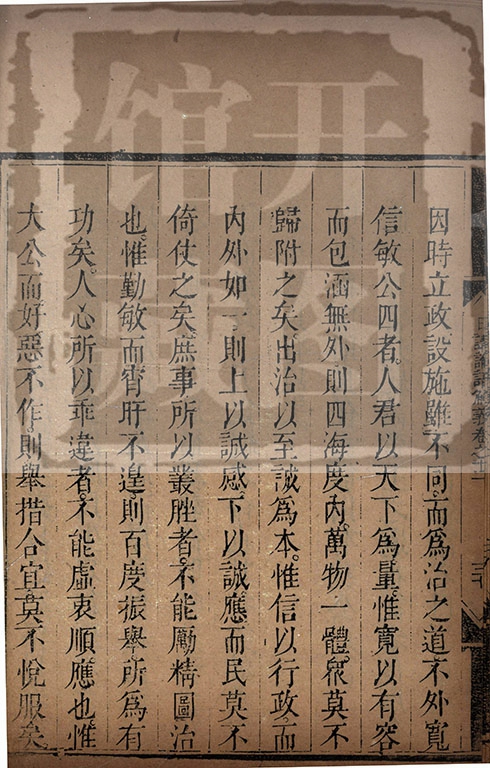 因時立政設施雖不同而爲治之道不外寬
信敏公四者人君以天下爲量惟寬以有容
而包涵無外則四海度內萬物一體衆莫不
歸附之矣出治以至誠爲本惟信以行政而
內外如一則上以誠感下以誠應而民莫不
倚仗之矣庶事所以叢脞者不能勵精圖治
也惟勤敏而宵旰不遑則百度振舉所爲有
功矣人心所以乖違者不能虛衷順應也惟
大公而好惡不作則舉措合宜莫不悅服矣